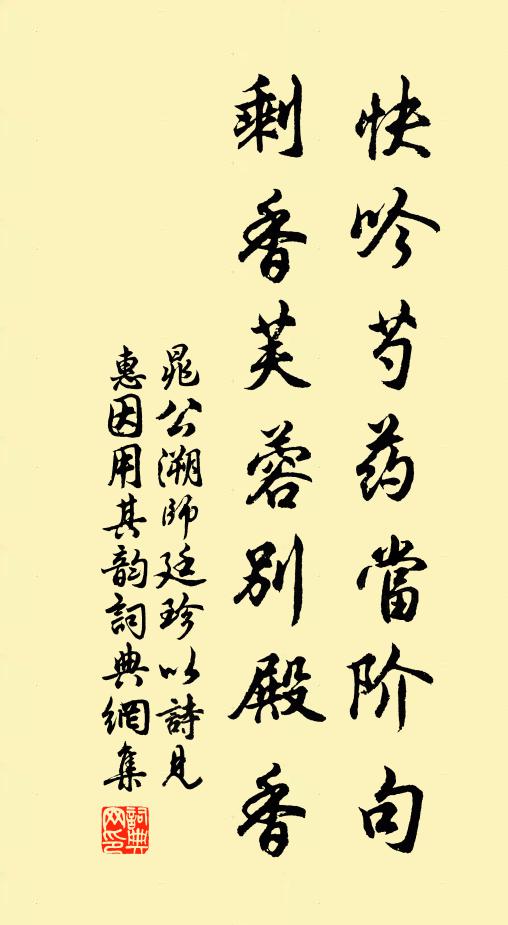 快吟芍药當阶句
剩香芙蓉别殿香
晁公溯師廷珍以詩見
惠因用其韵詞典網集
詞典
网印